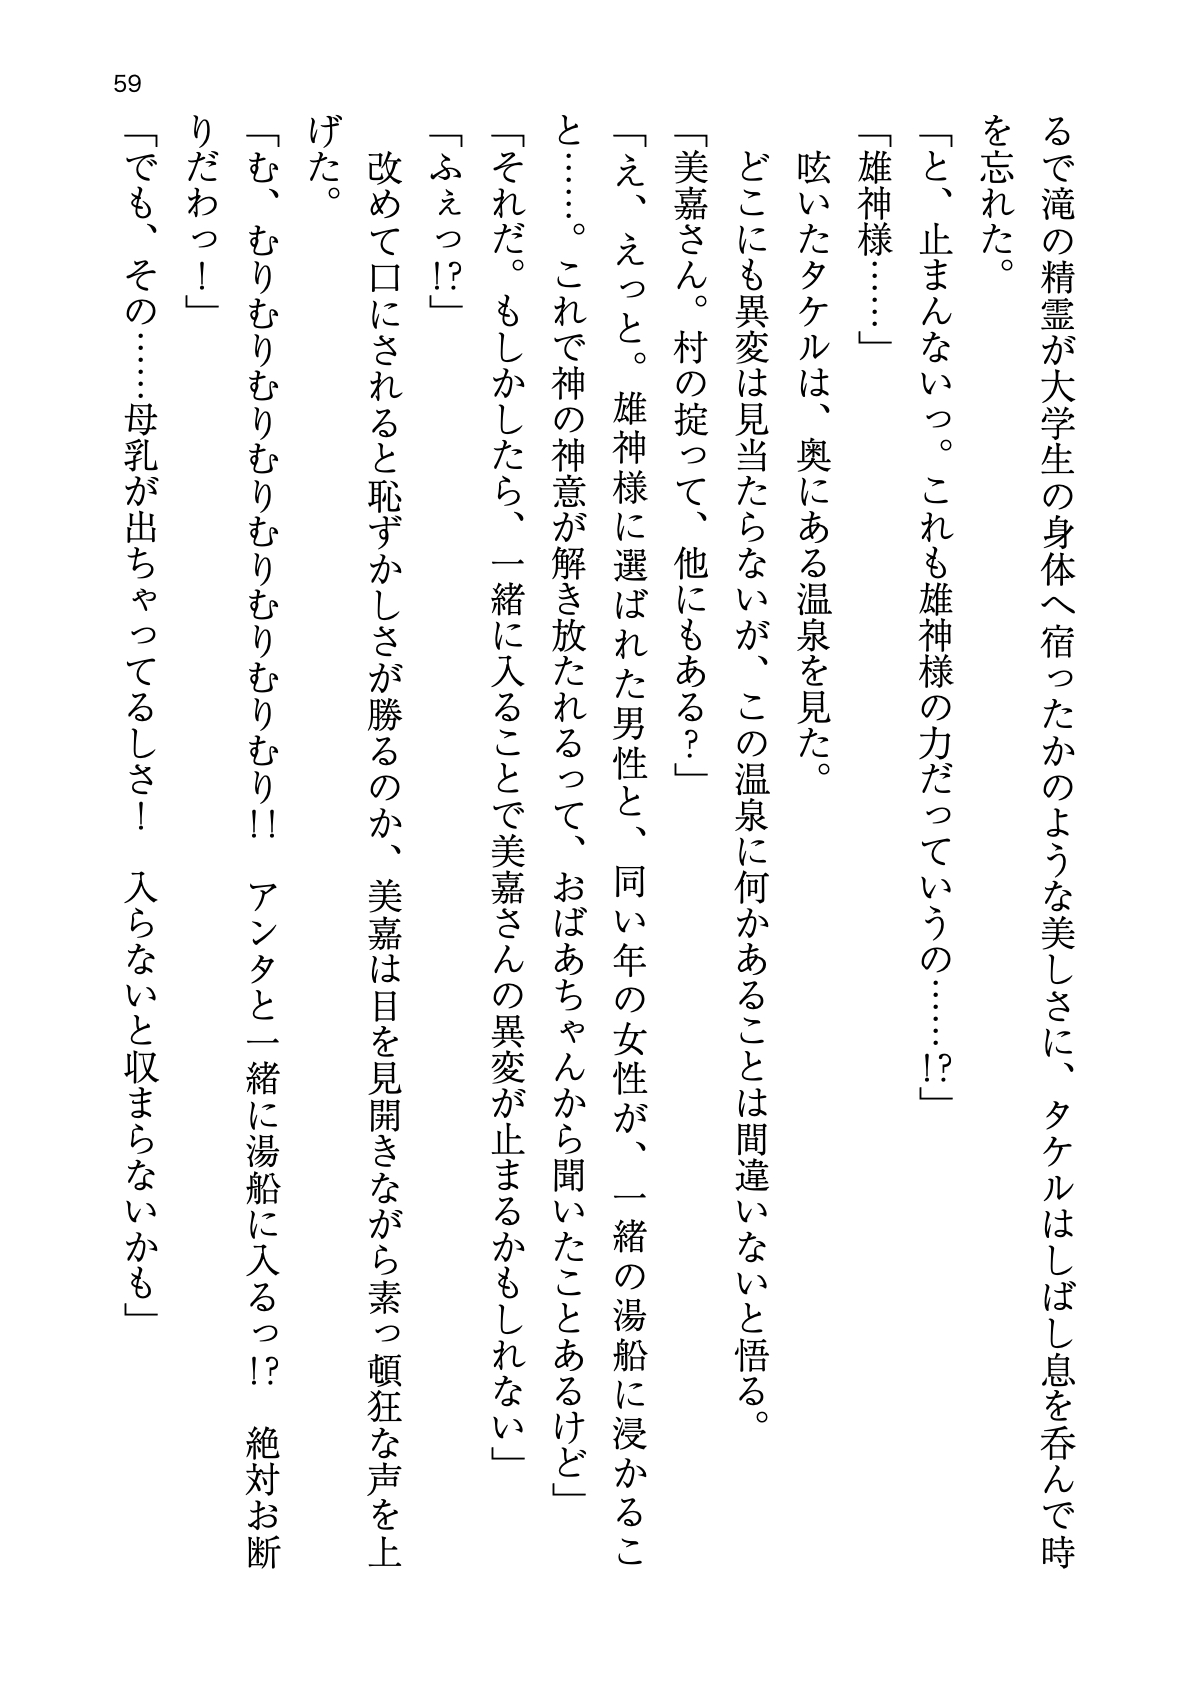 59
るで滝の精霊が大学生の身体へ宿ったかのような美しさに、タケルはしばし息を呑んで時
を忘れた。
「と、止まんないっ。これも雄神様の力だっていうの……!?」
「雄神様……」
　呟いたタケルは、奥にある温泉を見た。
　どこにも異変は見当たらないが、この温泉に何かあることは間違いないと悟る。
「美嘉さん。村の掟って、他にもある？」
「え、えっと。雄神様に選ばれた男性と、同い年の女性が、一緒の湯船に浸かるこ
と……。これで神の神意が解き放たれるって、おばあちゃんから聞いたことあるけど」
「それだ。もしかしたら、一緒に入ることで美嘉さんの異変が止まるかもしれない」
「ふぇっ!?」
　改めて口にされると恥ずかしさが勝るのか、美嘉は目を見開きながら素っ頓狂な声を上
げた。
「む、むりむりむりむりむりむりむりむり!!　アンタと一緒に湯船に入るっ!?　絶対お断
りだわっ！」
「でも、その……母乳が出ちゃってるしさ！　入らないと収まらないかも」